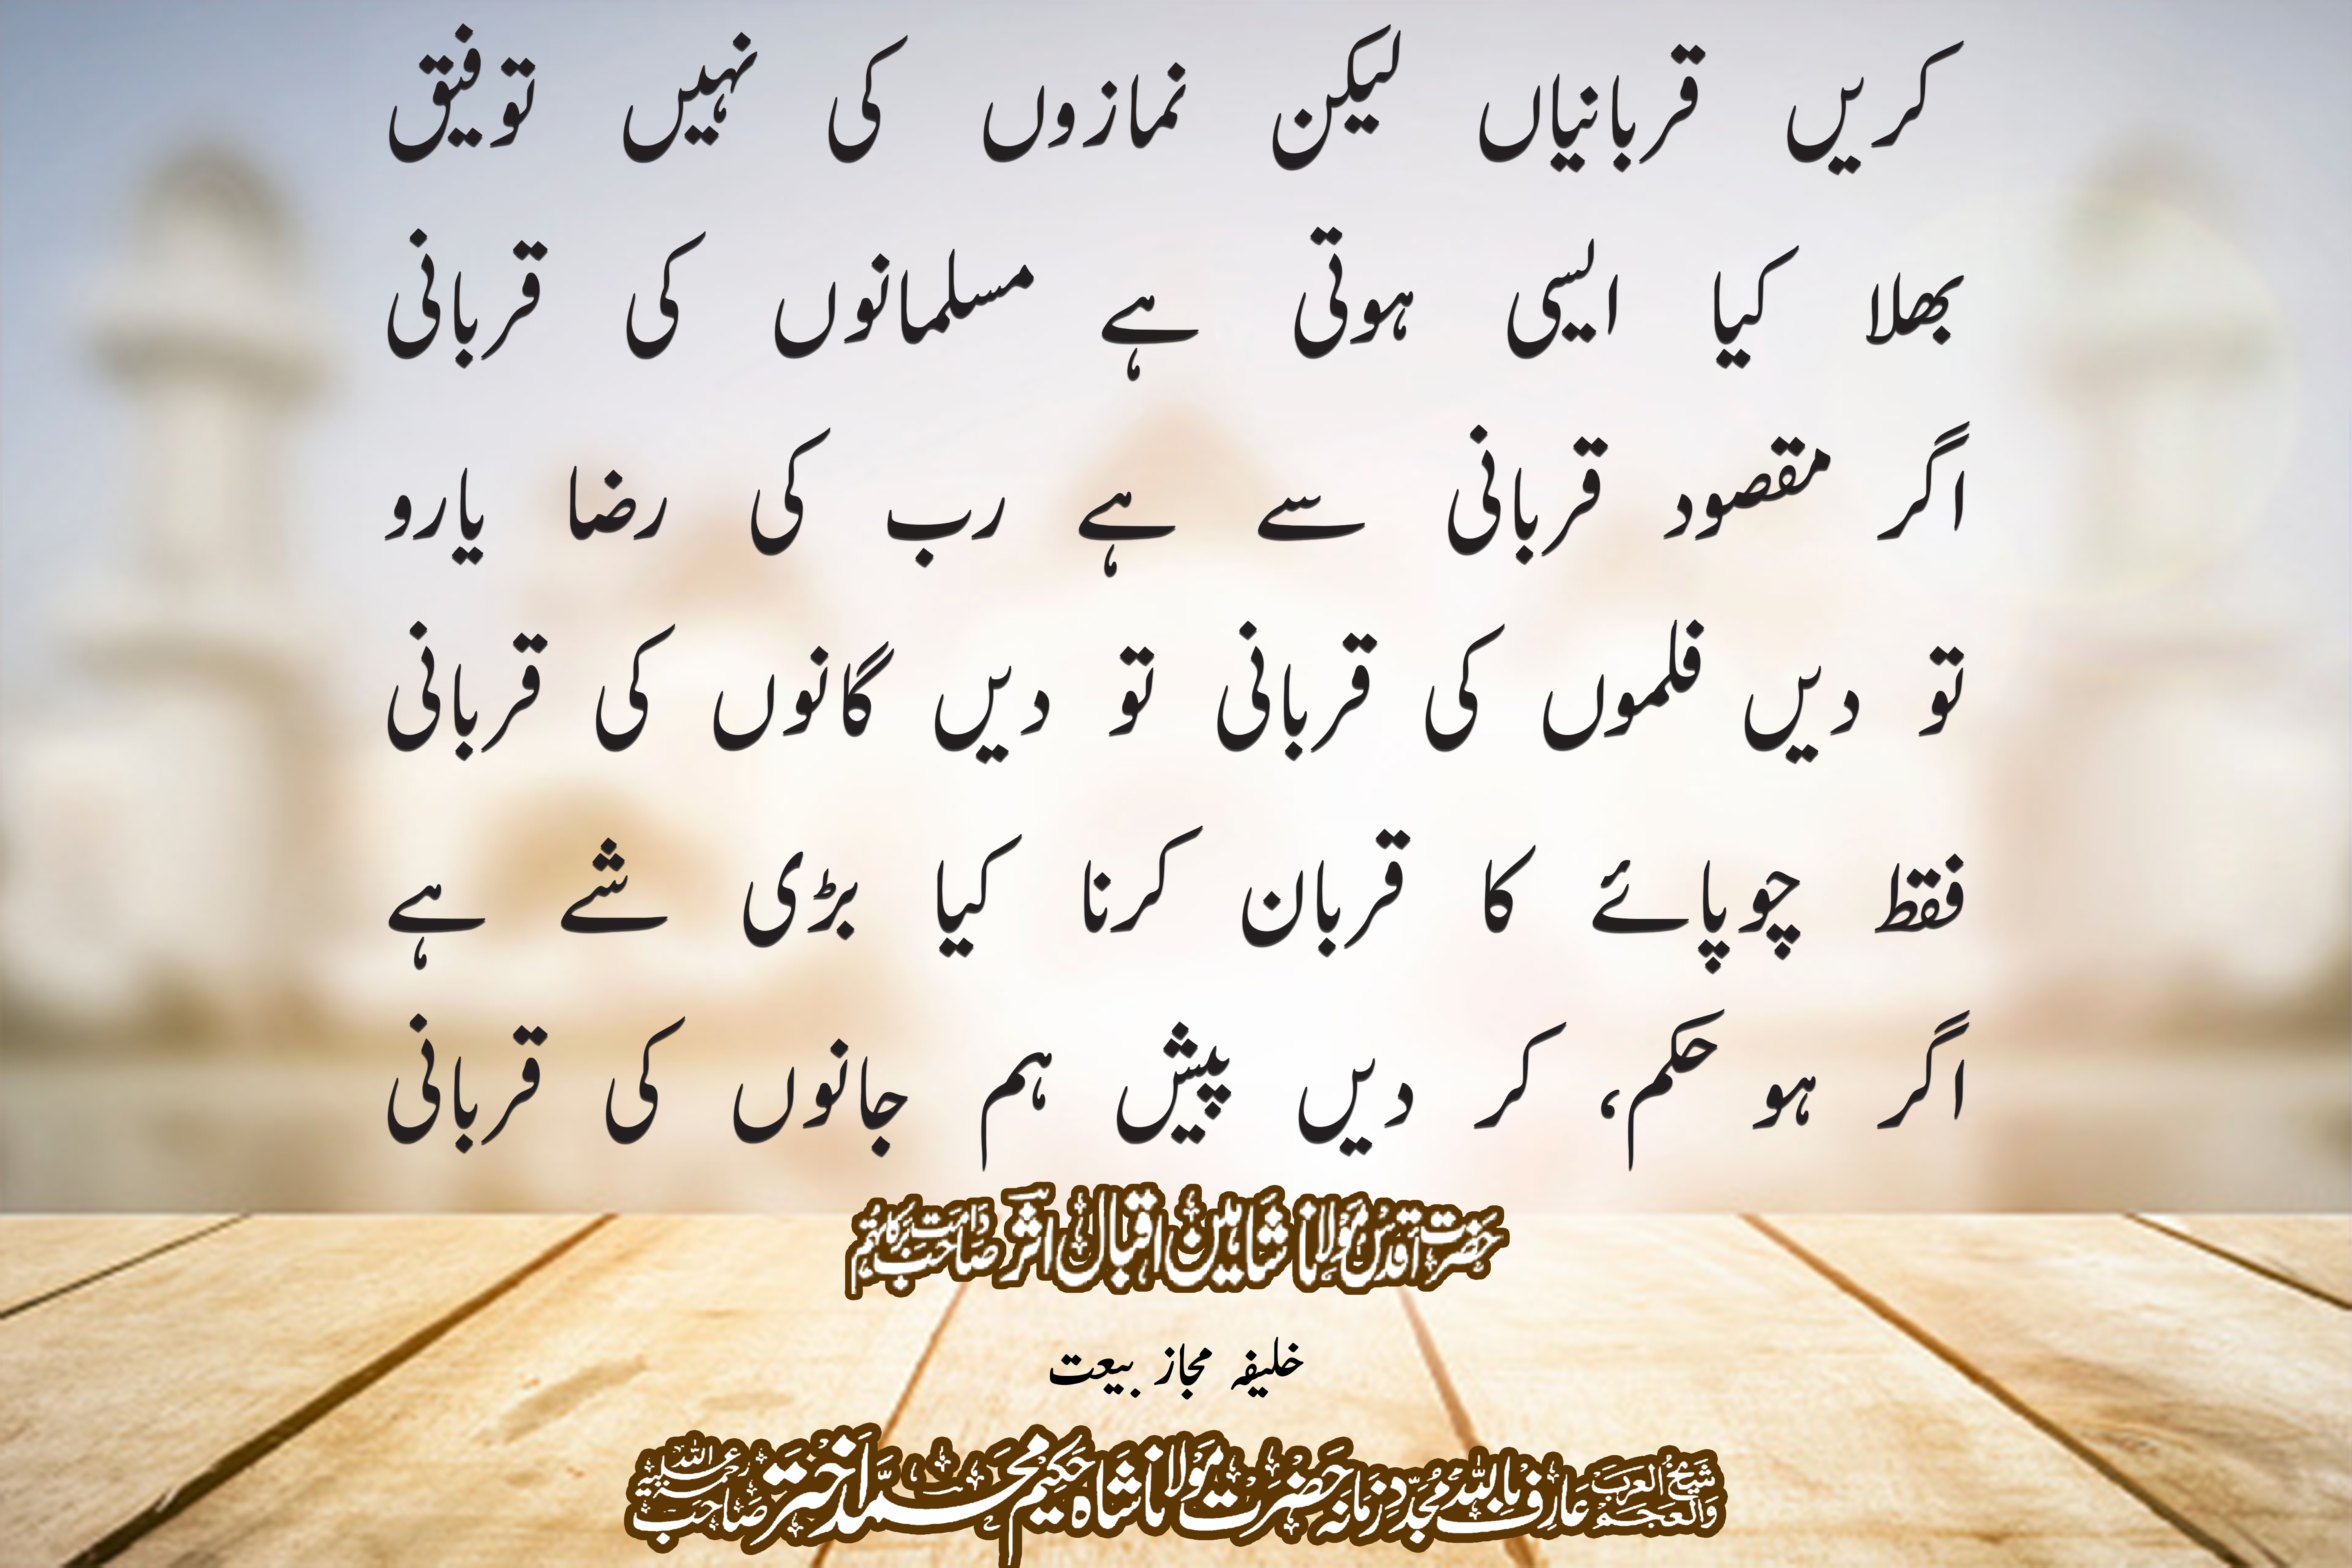 کریں قربانیاں لیکن نمازوں کی نہیں توفیق
بھلا کیا ایسی ہوتی ہے مسلمانوں کی قربانی
اگر مقصود قربانی سے ہے رب کی رضا یارو
تو دیں فلموں کی قربانی تو دیں گانوں کی قربانی
فقط چوپائے کا قربان کرنا کیا بڑی شے ہے
اگر ہو حکم، کر دیں پیش ہم جانوں کی قربانی
حضرت اقدس مولانا شاہین اقبال اثر صاحب دامت برکاتہم
خلیفہ مجاز بیعت
شیخ العرب والعجم عارف باللہ مجدد زمانہ حضرت مولانا شاہ حکیم محمد اختر صاحب رحمۃ اللہ علیہ